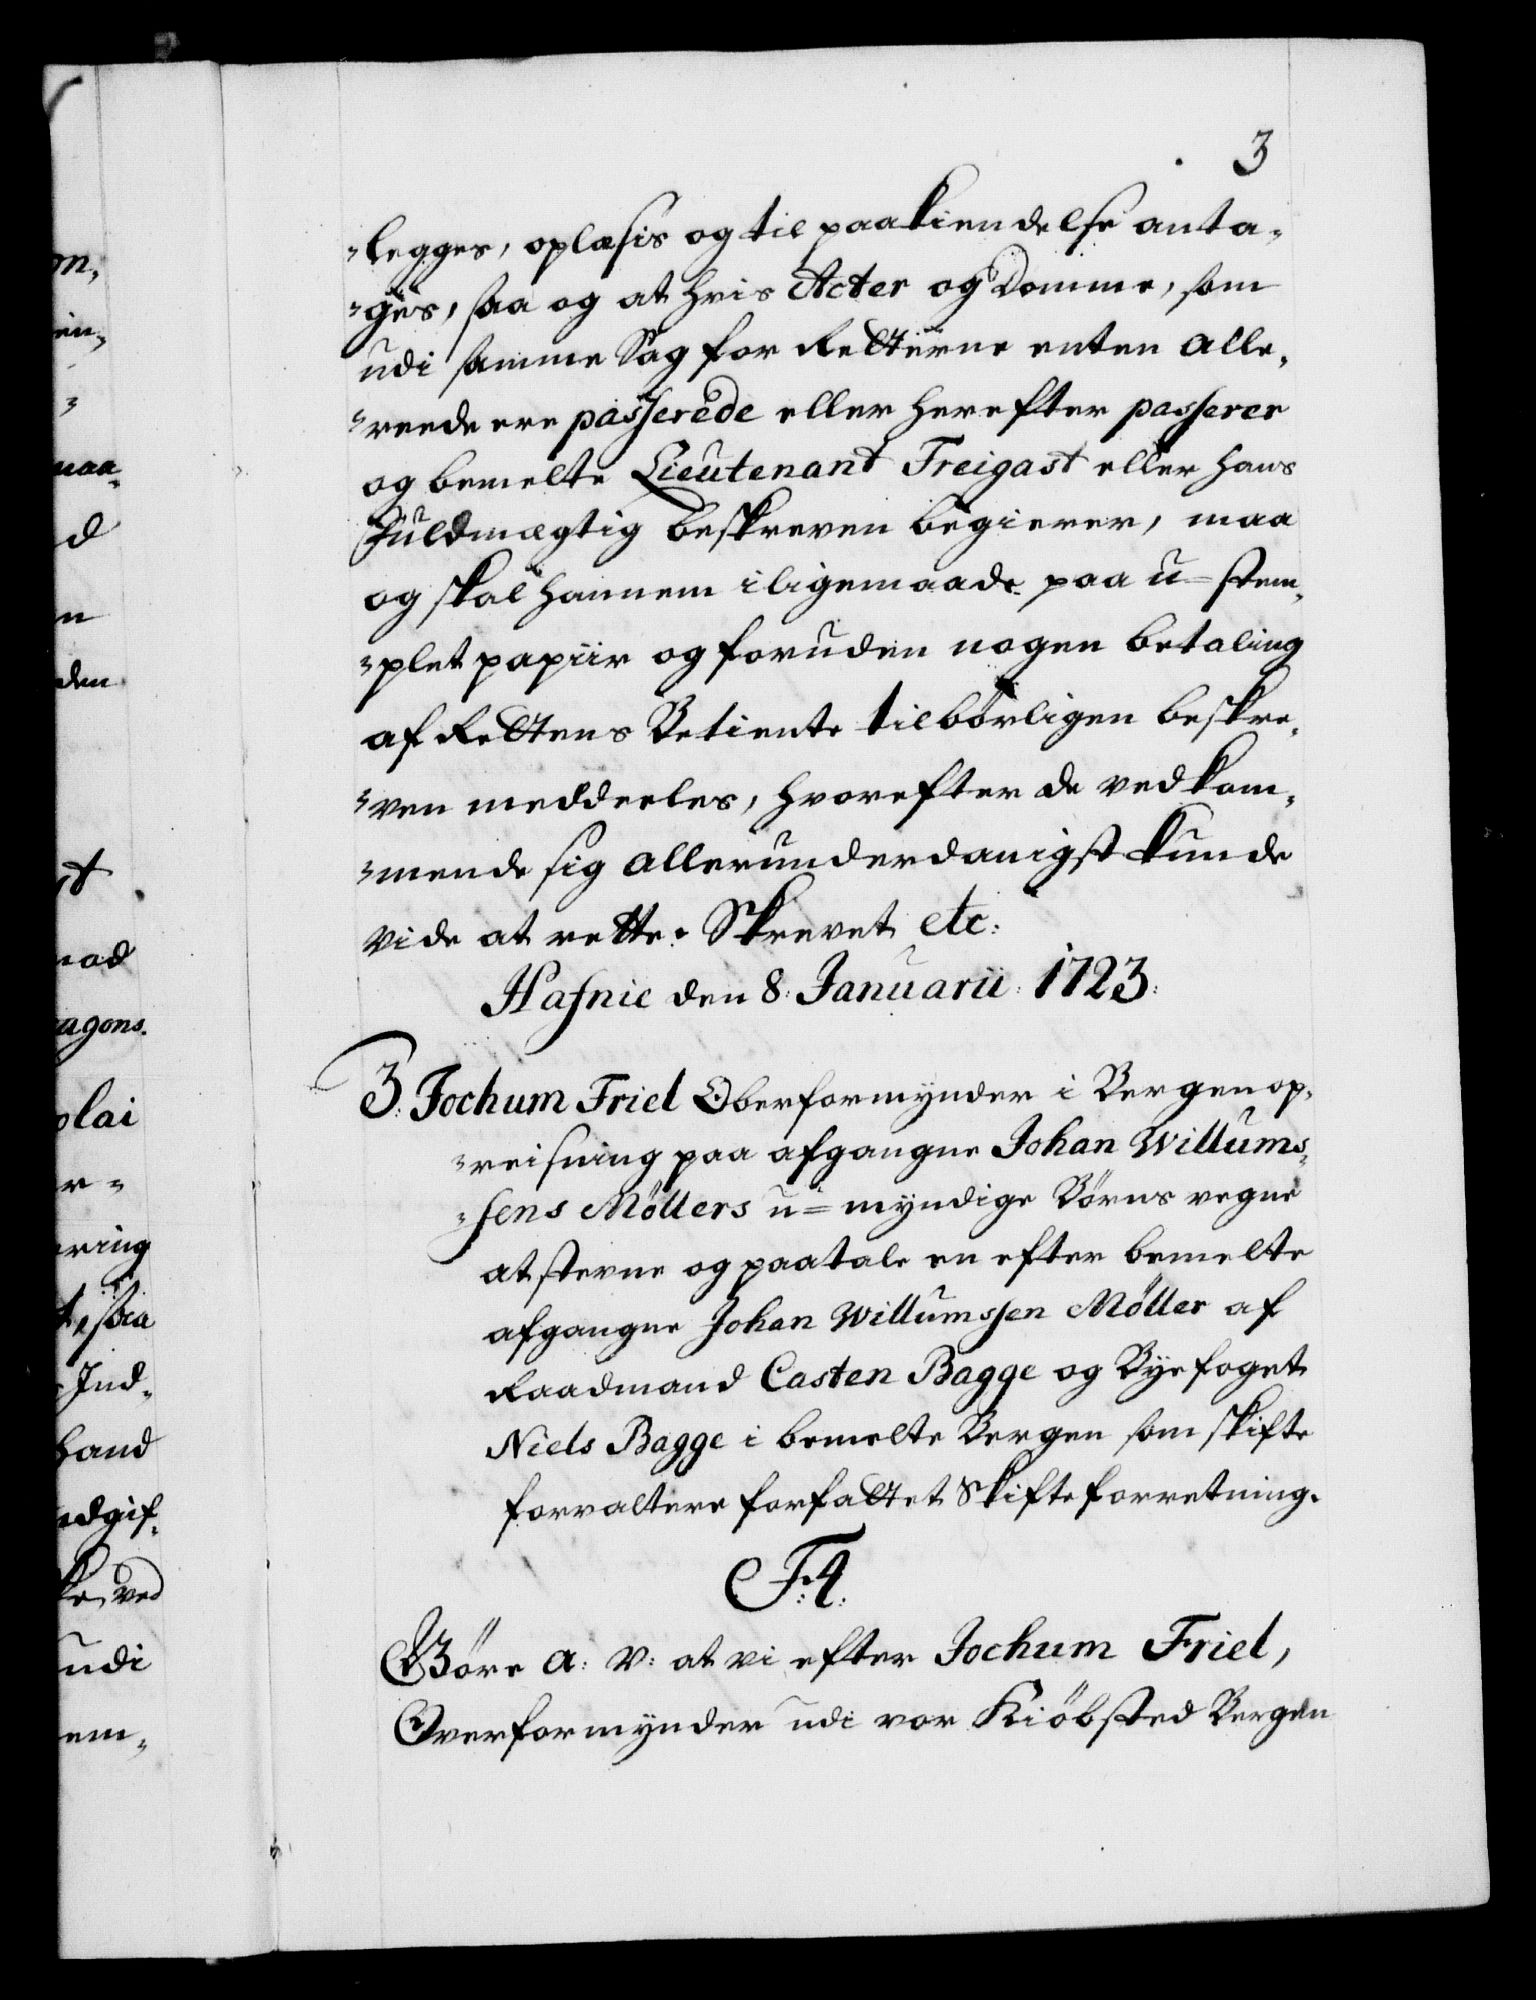 3
-legges, oplæsis og til paakiendelse anta-
-gis, saa og at hvis Acter og Domme, som
udi samme Sag for Retterne enten alle-
-reede ere passerede eller herefter passerer
og bemelte Lieutenant Treigast eller hans
Fuldmægtig beskreven begierer, maa
og skal hannem iligemaade paa u-stem-
-plet papiir og foruden nogen betaling
af Rettens Betiente tilbørligen beskre-
-ven meddeeles, hvorefter de vedkom-
-mende sig allerunderdanigst kunde
vide at rette. Skrevet etc:
Hafnie den 8: Januarii: 1723:
3: Jochum Friel Oberformynder i Bergen op-
-reisning paa afgangne Johan Willums-
-sens Möllers u-myndige Börns vegne
at stevne og paatale en efter bemelte
afgangne Johan Willumssen Möller af
Raadmand Casten Bagge og Byefoget
Niels Bagge i bemelte Bergen som skifte
forvaltere forfattet Skifteforretning.
F:4:
Giöre a: v: at vi efter Jochum Friel,
Overformynder udi vor Kiöbsted Bergen
on,
en,
maa-
d
n
den
olai
ering
Ind-
hand
udi
em-